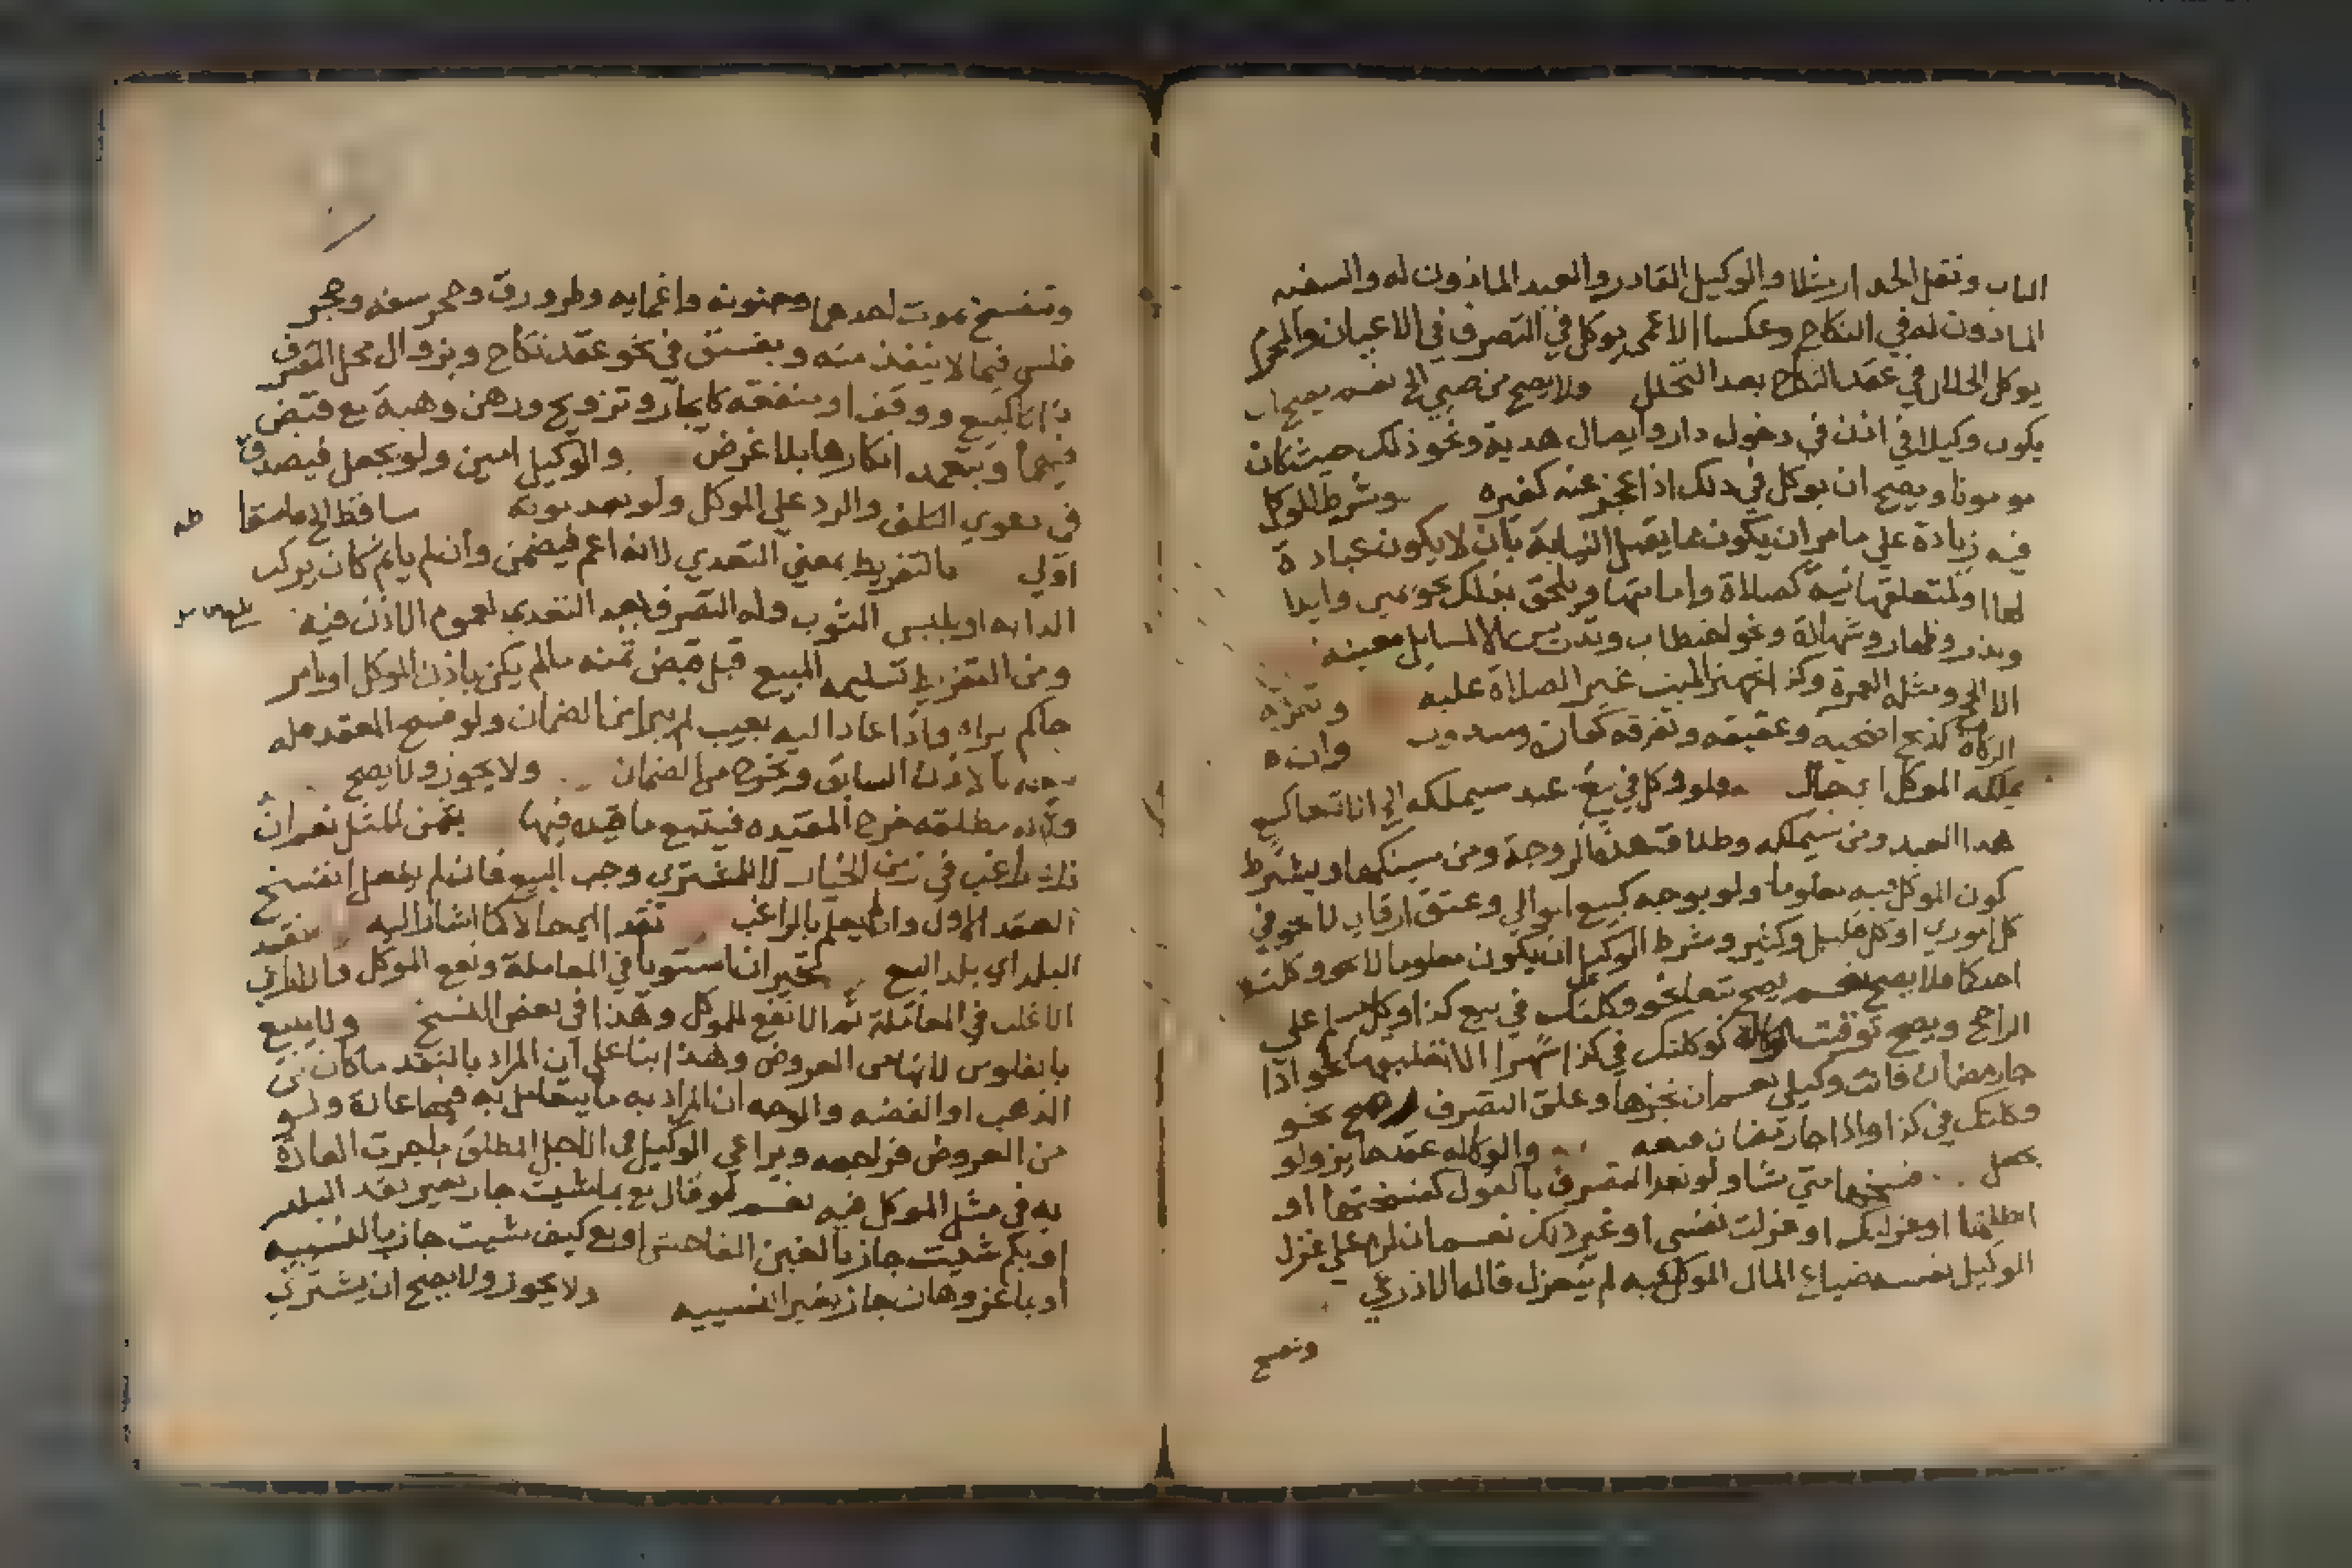 الباب ونقل الحد ارشلا والوكيل القادر والعبد الماذون له والسفيه
الماذون له في النكاح وعكسا الاعمى يوكل في التصرف في الاعيان والمحرم
يوكل الحلال في عقد النكاح بعد التحلل ولا يصح من صبي الى نعم يصح ان
يكون وكيلا في اذن في دخول دار وايصال هدية ونحو ذلك حيث كان
مومونا ويصح ان يوكل في ذلك اذا عجز عنه كغيره وشرط الموكل
فيه زيادة على ما مر ان يكون مما يقبل النيابة بان لا يكون عبادة
لها او لمتعلقها نية كصلاة وامامتها ويلحق بذلك نحو يمين وايلا
ونذر وظهار وشهادة ونحو خطاب وتدريس الا لمسايل معينه
الا الحج ومثله العمرة وكذا تجهيز الميت غير الصلاة عليه وتفرقة
الزكاة كذبح اضحيه وعقيقه وتفرقه كفارة ومندوب وان
يملكه الموكل اي حال فلو وكل في بيع عبد سيملكه الى الا تبعا كبيع
هذا العبد ومن سيملكه وطلاق هذه الزوجة ومن سينكحها ويشترط
كون الموكل فيه معلوما ولو بوجه كبيع اموالي وعتق ارقاي لا نحو في
كل اموري او كل قليل وكثير وشرط الوكيل ان يكون معلوما لا نحو وكلت
احدكما فلا يصح نعم يصح تبعا نحو وكلتك في بيع كذا وكل مسلم على
الراجح ويصح توقيت الوكالة كوكلتك في كذا شهرا لا تعليقها نحو اذا
جا رمضان فانت وكيلي نعم ان نجزها وعلق التصرف صح نحو
وكلتك في كذا واذا جا رمضان فبعه والوكاله عقد جايز ولو
بجعل فسخها متى شا ولو بعد التصرف بالقول كفسختها او
ابطلتها او عزلتك او عزلت نفسي او غير ذلك نعم ان لزم على عزل
الوكيل نفسه ضياع المال الموكل فيه لم ينعزل قاله الاذرعي
وتنفسخ
وتنفسخ بموت احدهما وجنونه واغمايه وطرو رق وحجر سفه وحجر
فلس فيما لا ينفذ منه وبفسق في نحو عقد نكاح وبزوال محل التصرف
ذاتا كبيع ووقف او منفعة كايجار وتزويج ورهن وهبة مع قبض
فيهما وبتعمد انكارها بلا غرض والوكيل امين ولو بجعل فيصدق
في دعوى التلف والرد على الموكل ولو بعد موته ساقط الى
اولى بالتفريط بمعنى التعدي لانه اعم فيضمن وان لم ياثم كان يركب
الدابه او يلبس الثوب وله التصرف بعد التعدي لعموم الاذن فيه
ومن التفريط تسليمه المبيع قبل قبض ثمنه ما لم يكن باذن الموكل او بامر
حاكم يراه واذا عاد اليه بعيب لم يبرا من الضمان ولو فسخ العقد فله
بيعه بالاذن السابق ونحوه من الضمان ولا يجوز ولا يصح
مطلقه خرج المقيده فيتبع ما قيده فيها بثمن المثل نعم ان
زاد راغب في زمن الخيار لا للمشتري وجب البيع فان لم يفعل انفسخ
العقد الاول وان لم يعلم بالراغب نقد اي حالا كما اشار اليه بنقد
البلد اي بلد البيع تخير ان استويا في المعاملة ونفع الموكل والا راعى
الاغلب في المعاملة ثم الانفع للموكل وهذا في بعض النسخ ولا يبيع
بالفلوس لانها من العروض وهذا بنا على ان المراد بالنقد ما كان من
الذهب او الفضه والاوجه ان المراد به ما يتعامل به فيها عادة ولو
من العروض فراجعه ويراعي الوكيل في الاجل المطلق ما جرت العادة
به في مثل الموكل فيه نعم لو قال بع بما شيت جاز بغير نقد البلد
او بكم شيت جاز بالغبن الفاحش او بع كيف شيت جاز بالنسييه
او بما عز وهان جاز بغير النسييه ولا يجوز ولا يصح ان يشتري